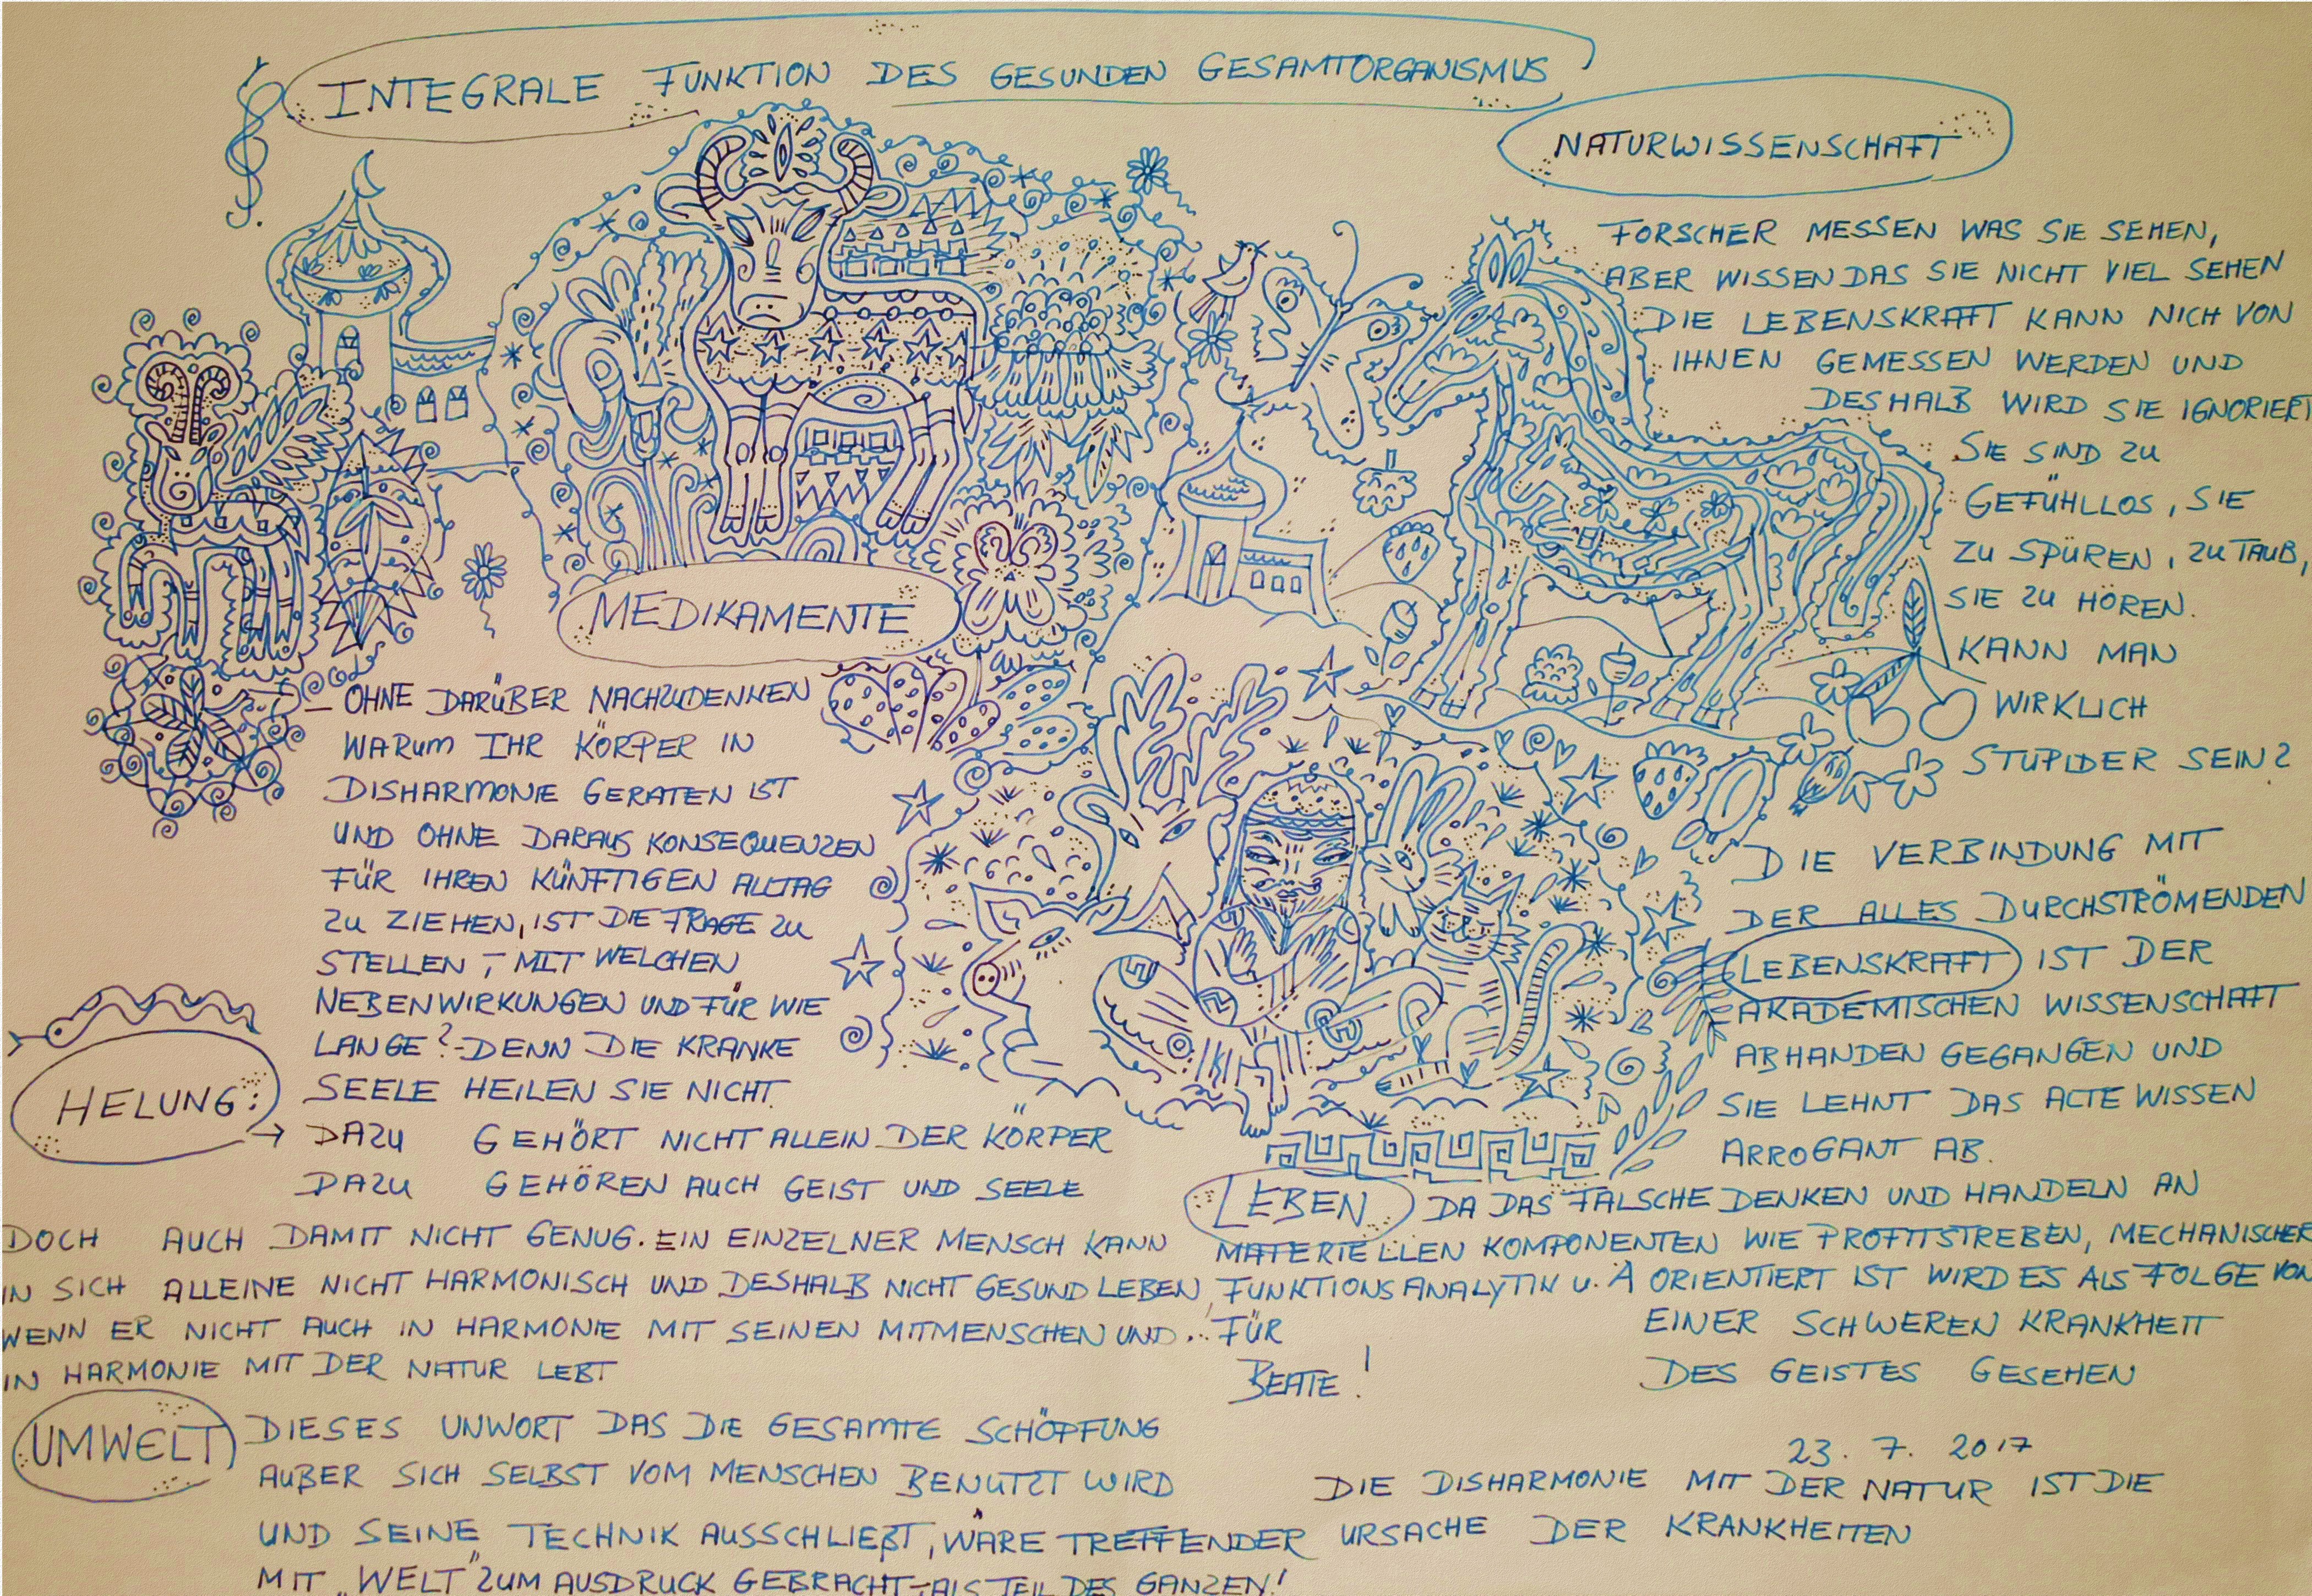 INTEGRALE FUNKTION DES GESUNDEN GESAMTORGANISMUS
NATURWISSENSCHAFT
FORSCHER MESSEN WAS SIE SEHEN,
ABER WISSEN DAS SIE NICHT VIEL SEHEN
DIE LEBENSKRAFT KANN NICH VON
IHNEN GEMESSEN WERDEN UND
DESHALB WIRD SIE IGNORIERT
SIE SIND ZU
GEFÜHLLOS, SIE
ZU SPÜREN, ZU TAUB,
SIE ZU HÖREN.
KANN MAN
WIRKLICH
STUPIDER SEIN?
DIE VERBINDUNG MIT
DER ALLES DURCHSTRÖMENDEN
LEBENSKRAFT IST DER
AKADEMISCHEN WISSENSCHAFT
ABHANDEN GEGANGEN UND
SIE LEHNT DAS ALTE WISSEN
ARROGANT AB.
MEDIKAMENTE
– OHNE DARÜBER NACHZUDENKEN
WARUM IHR KÖRPER IN
DISHARMONIE GERATEN IST
UND OHNE DARAUS KONSEQUENZEN
FÜR IHREN KÜNFTIGEN ALLTAG
ZU ZIEHEN, IST DIE FRAGE ZU
STELLEN, – MIT WELCHEN
NEBENWIRKUNGEN UND FÜR WIE
LANGE? – DENN DIE KRANKE
SEELE HEILEN SIE NICHT.
HELUNG:
→ DAZU GEHÖRT NICHT ALLEIN DER KÖRPER
DAZU GEHÖREN AUCH GEIST UND SEELE
DOCH AUCH DAMIT NICHT GENUG. EIN EINZELNER MENSCH KANN
IN SICH ALLEINE NICHT HARMONISCH UND DESHALB NICHT GESUND LEBEN,
WENN ER NICHT AUCH IN HARMONIE MIT SEINEN MITMENSCHEN UND..
IN HARMONIE MIT DER NATUR LEBT
LEBEN DA DAS FALSCHE DENKEN UND HANDELN AN
MATERIELLEN KOMPONENTEN WIE PROFITSTREBEN, MECHANISCHER
FUNKTIONSANALYTIK U. Ä ORIENTIERT IST WIRD ES ALS FOLGE VON
EINER SCHWEREN KRANKHEIT
DES GEISTES GESEHEN
FÜR
BEATE!
UMWELT DIESES UNWORT DAS DIE GESAMTE SCHÖPFUNG
AUßER SICH SELBST VOM MENSCHEN BENUTZT WIRD
UND SEINE TECHNIK AUSSCHLIEßT, WÄRE TREFFENDER
MIT „WELT" ZUM AUSDRUCK GEBRACHT – ALS TEIL DES GANZEN!
23. 7. 2017
DIE DISHARMONIE MIT DER NATUR IST DIE
URSACHE DER KRANKHEITEN